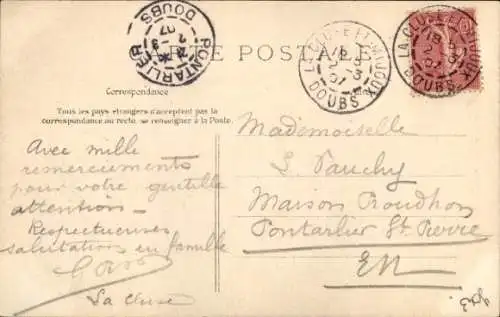 PONTARLIER
DOUBS
07
CARTE POSTALE
LA CLUSE ET MIJOUX
DOUBS
LA CLUSE ET MIJOUX
DOUBS
Correspondance
Tous les pays étrangers n'acceptent pas la
correspondance au recto, se renseigner à la Poste.
Avec mille
remerciements
pour votre gentille
attention—
Respectueuses
salutations en famille
La Cluse
Mademoiselle
Pauchy
Maison Proudhon
Pontarlier St Pierre